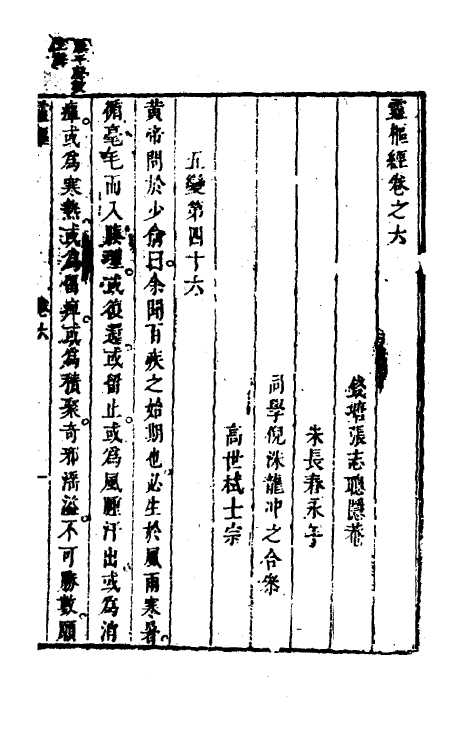 靈樞經卷之六
錢塘張志聰隱菴
朱長春永年
同學倪洙龍冲之合參
高世栻士宗
五變第四十六
黃帝問於少俞曰余聞百疾之始期也必生於風雨寒暑
循毫毛而入腠理或復還或留止或為風腫汗出或為消
癉或為寒熱或為留痺或為積聚奇邪淫溢不可勝數願
靈樞
卷六
一